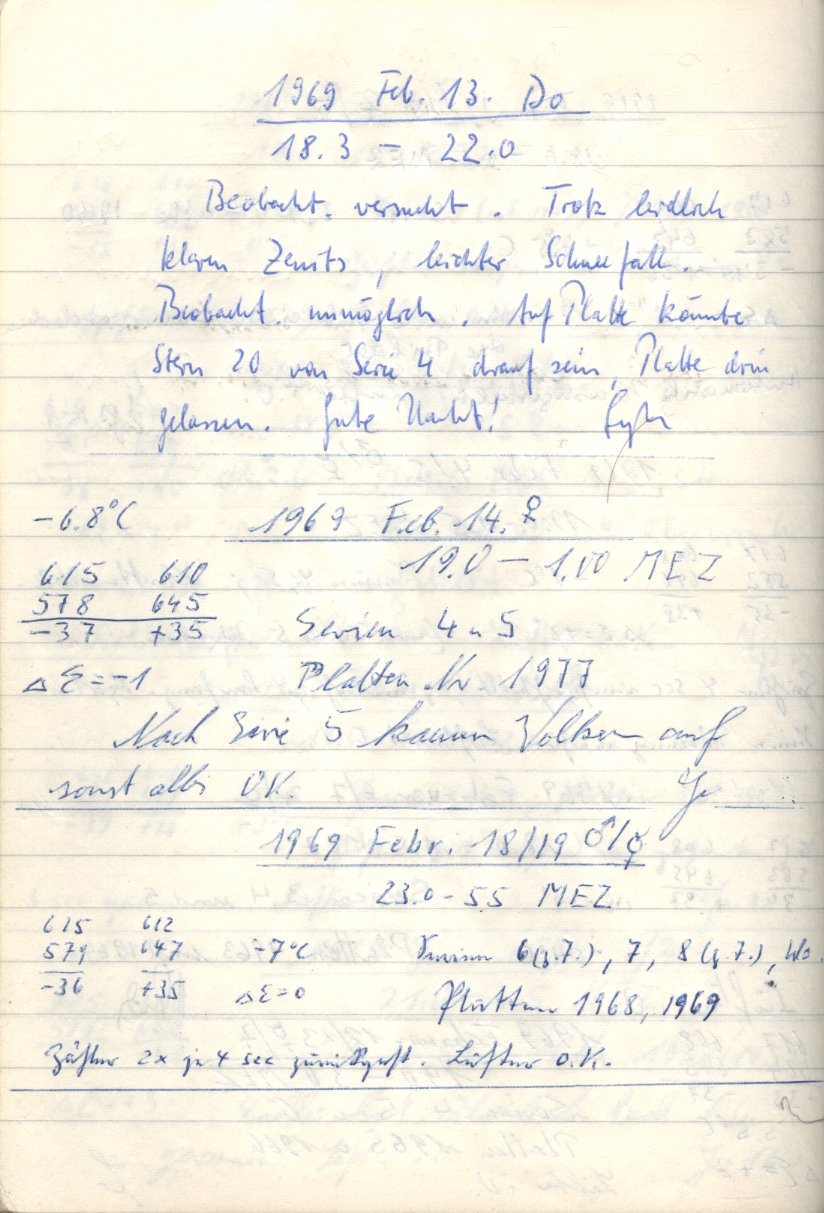 1969 Feb. 13. Do
18.3 – 22.0
Beobacht. versucht. Trotz leidlich
klaren Zenits, leichter Schneefall.
Beobacht. unmöglich. Auf Platte könnte
Stern 20 von Serie 4 drauf sein, Platte drin
gelassen. Gute Nacht!
-6.8°C 1969 Feb. 14. ♀
19.0 – 1.00 MEZ
615 610
578 645
-37 +35
Serien 4 u 5
Δ Σ = -1 Platten Nr 1977
Nach Serie 5 kamen Wolken auf
sonst alles O.K.
1969 Febr. 18/19 ♂/☿
23.0 – 5.5 MEZ
615 612
579 647 -7°C Serien 6 (z.T.), 7, 8 (z.T.), Wo.
-36 +35 ΔΣ=0 Platten 1968, 1969
Zähler 2x je 4 sec zurückgest. Lüfter O.K.